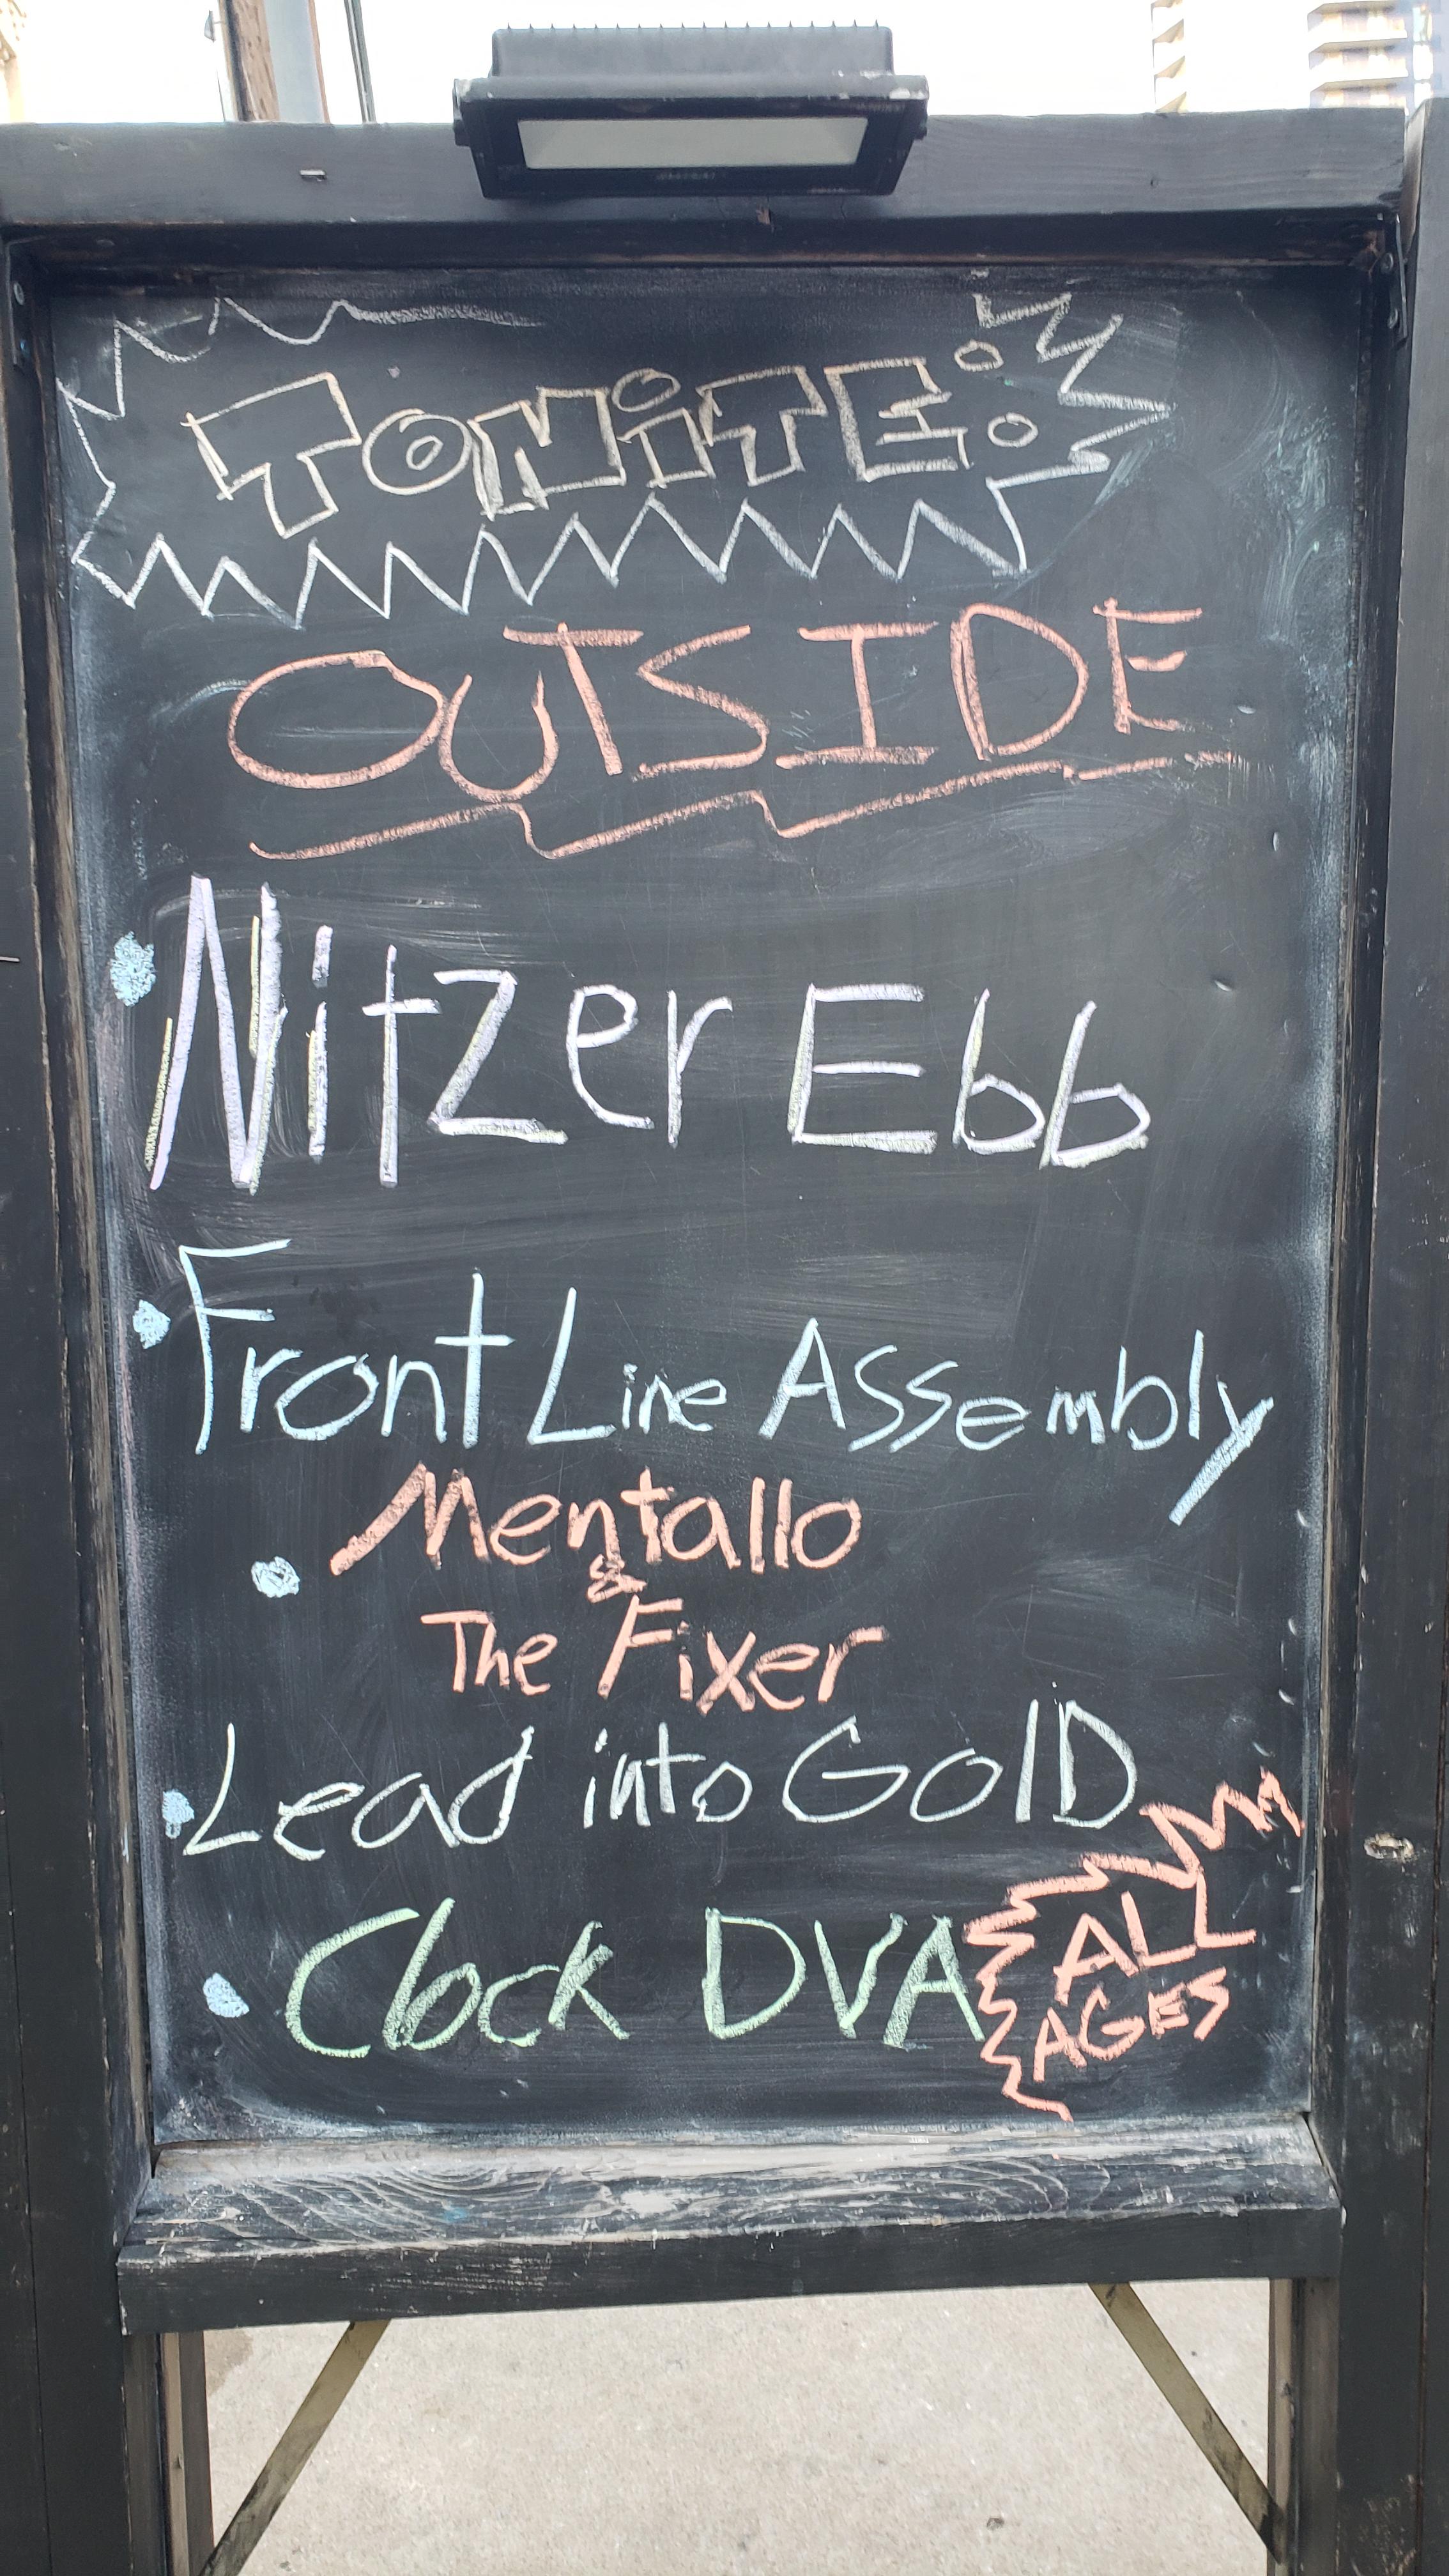 TONiTE:
OUTSIDE
• Nitzer Ebb
• Front Line Assembly
• Mentallo
&
The Fixer
• Lead into GolD
• Clock DVA
ALL
AGES